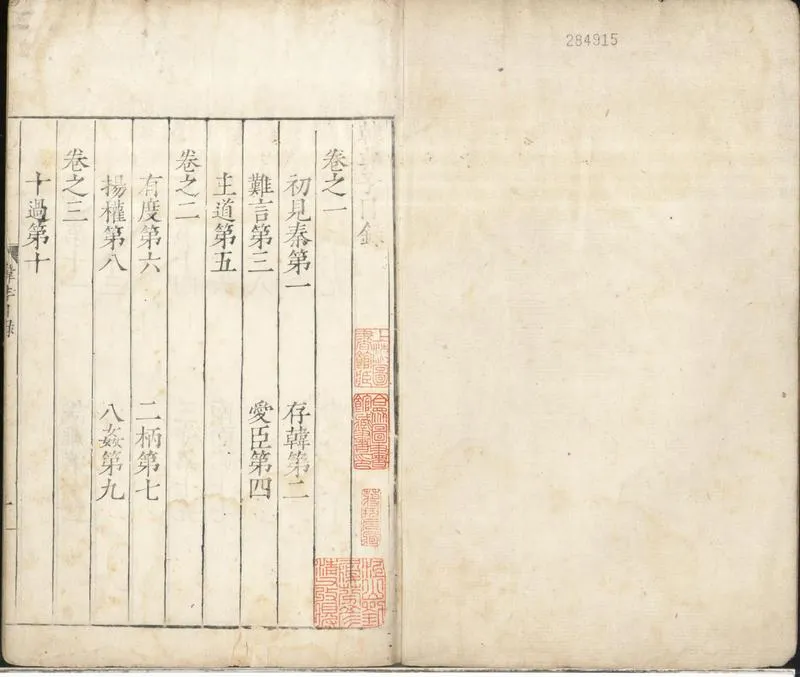 284915
目錄
卷之一
初見秦第一 存韓第二
難言第三 愛臣第四
主道第五
卷之二
有度第六 二柄第七
揚權第八 八姦第九
卷之三
十過第十